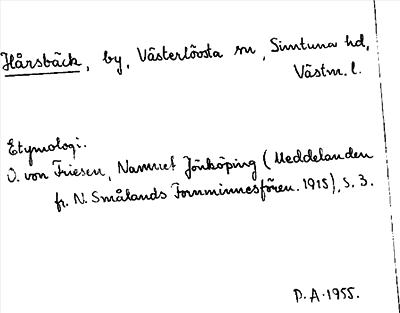 Hårsbäck, by, Västerlövsta sn, Simtuna hd,
Västm. l.
Etymologi.
O. von Friesen, Namnet Jönköping (Meddelanden
fr. N. Smålands Fornminnesfören. 1915), s. 3.
P.A. 1955.